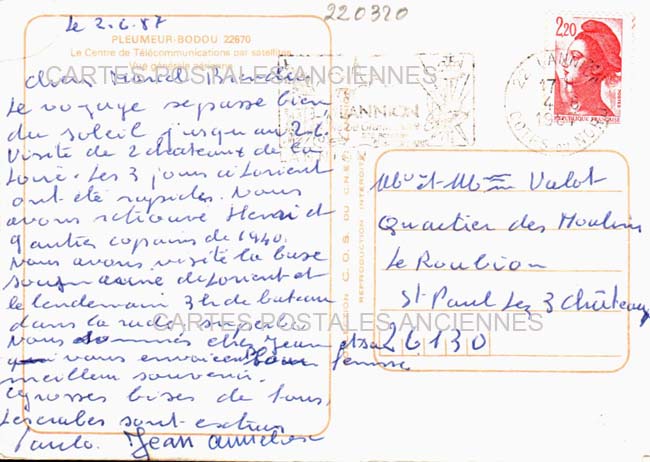 220320
le 2.6.87
PLEUMEUR-BODOU 22670
Le Centre de Télécommunications par satellites
Vue générale aérienne
Chers Marcel
CARTES POSTALES ANCIENNES
Le voyage se passe bien
du soleil jusqu'au 2.6.
Visite de 2 chateaux de la
Loire. Les 3 jours à Lorient
ont été rapides. Nous
avons retrouvé Henri et
9 autres copains de 1940.
Nous avons visité la base
sous marine de Lorient et
le lendemain 3h de bateau
dans la rade superbe.
CARTES POSTALES ANCIENNES
Nous sommes chez Jean et sa
qui vous envoient leur
meilleur souvenir.
Grosses bises de tous,
Les crabes sont extras
Paulo. Jean
LANNION
REPRODUCTION INTERDITE
2,20
22 LANNION
17
4
1987
COTES DU NORD
REPUBLIQUE FRANÇAISE
Mr et Mme Valot
Quartier des Moulins
Le Roubion
St Paul Les 3 Châteaux
26130